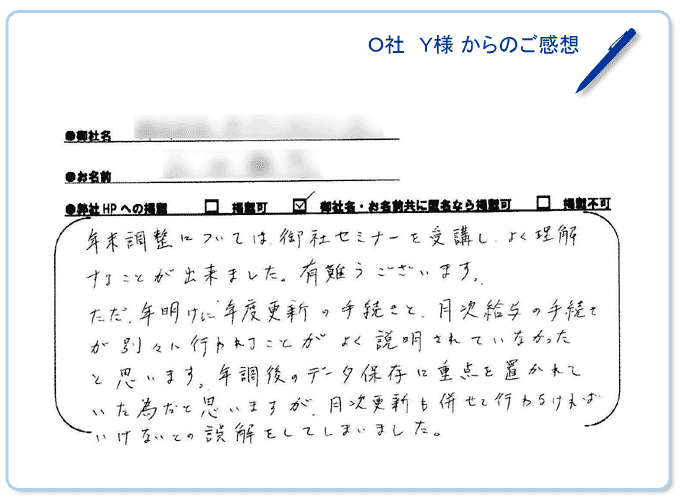 O社 Y様 からのご感想
●御社名
●お名前
●弊社HPへの掲載 □ 掲載可 ☑ 御社名・お名前共に匿名なら掲載可 □ 掲載不可
年末調整については、御社セミナーを受講し、よく理解
することが出来ました。有難うございます。
ただ、年明けに年度更新の手続きと、月次給与の手続き
が別々に行われることがよく説明されていなかった
と思います。年調後のデータ保存に重点を置かれて
いた為だと思いますが、月次更新も併せて行わなければ
いけないとの誤解をしてしまいました。